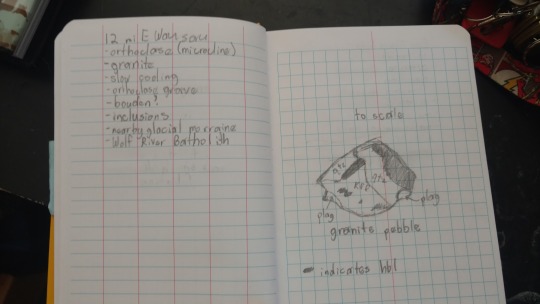 12 mi E Wausau
- orthoclase (microcline)
- granite
- slow cooling
- orthoclase groove
- boudan?
- inclusions
- nearby glacial morraine
- Wolf River Batholith
to scale
qtz
qtz
plag
plag
granite pebble
indicates hbl